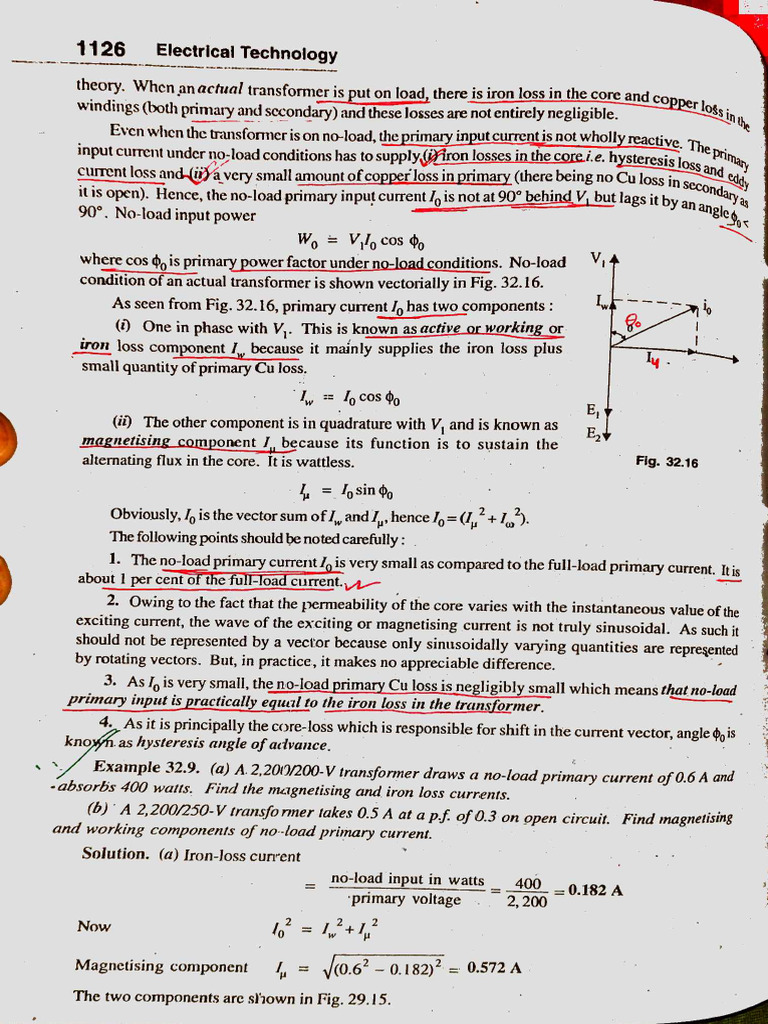 1126 Electrical Technology
theory. When an actual transformer is put on load, there is iron loss in the core and copper loss in the
windings (both primary and secondary) and these losses are not entirely negligible.
Even when the transformer is on no-load, the primary input current is not wholly reactive. The primary
input current under no-load conditions has to supply (i) iron losses in the core i.e. hysteresis loss and eddy
current loss and (ii) a very small amount of copper loss in primary (there being no Cu loss in secondary as
it is open). Hence, the no-load primary input current I₀ is not at 90° behind V₁ but lags it by an angle ϕ₀ <
90°. No-load input power
W₀ = V₁I₀ cos ϕ₀
where cos ϕ₀ is primary power factor under no-load conditions. No-load
condition of an actual transformer is shown vectorially in Fig. 32.16.
As seen from Fig. 32.16, primary current I₀ has two components :
(i) One in phase with V₁. This is known as active or working or
iron loss component I_w because it mainly supplies the iron loss plus
small quantity of primary Cu loss.
I_w = I₀ cos ϕ₀
(ii) The other component is in quadrature with V₁ and is known as
magnetising component I_μ because its function is to sustain the
alternating flux in the core. It is wattless.
I_μ = I₀ sin ϕ₀
V₁
I_w
i₀
θ₀
I_μ
E₁
E₂
Fig. 32.16
Obviously, I₀ is the vector sum of I_w and I_μ, hence I₀ = (I_μ² + I_ω²).
The following points should be noted carefully :
1. The no-load primary current I₀ is very small as compared to the full-load primary current. It is
about 1 per cent of the full-load current.
2. Owing to the fact that the permeability of the core varies with the instantaneous value of the
exciting current, the wave of the exciting or magnetising current is not truly sinusoidal. As such it
should not be represented by a vector because only sinusoidally varying quantities are represented
by rotating vectors. But, in practice, it makes no appreciable difference.
3. As I₀ is very small, the no-load primary Cu loss is negligibly small which means that no-load
primary input is practically equal to the iron loss in the transformer.
4. As it is principally the core-loss which is responsible for shift in the current vector, angle ϕ₀ is
known as hysteresis angle of advance.
Example 32.9. (a) A 2,200/200-V transformer draws a no-load primary current of 0.6 A and
absorbs 400 watts. Find the magnetising and iron loss currents.
(b) A 2,200/250-V transformer takes 0.5 A at a p.f. of 0.3 on open circuit. Find magnetising
and working components of no-load primary current.
Solution. (a) Iron-loss current
= no-load input in watts / primary voltage = 400 / 2,200 = 0.182 A
Now I₀² = I_w² + I_μ²
Magnetising component I_μ = √(0.6² − 0.182)² = 0.572 A
The two components are shown in Fig. 29.15.